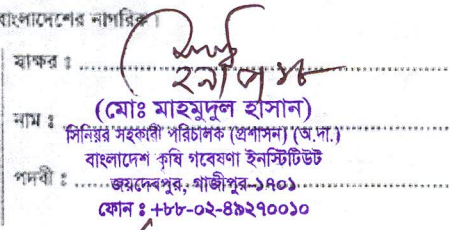 বাংলাদেশের নাগরিক।
স্বাক্ষর ঃ
নাম ঃ (মোঃ মাহমুদুল হাসান)
সিনিয়র সহকারী পরিচালক (প্রশাসন) (অ.দা.)
বাংলাদেশ কৃষি গবেষণা ইনস্টিটিউট
পদবী ঃ জয়দেবপুর, গাজীপুর-১৭০১
ফোন ঃ +৮৮-০২-৪৯২৭০০১০